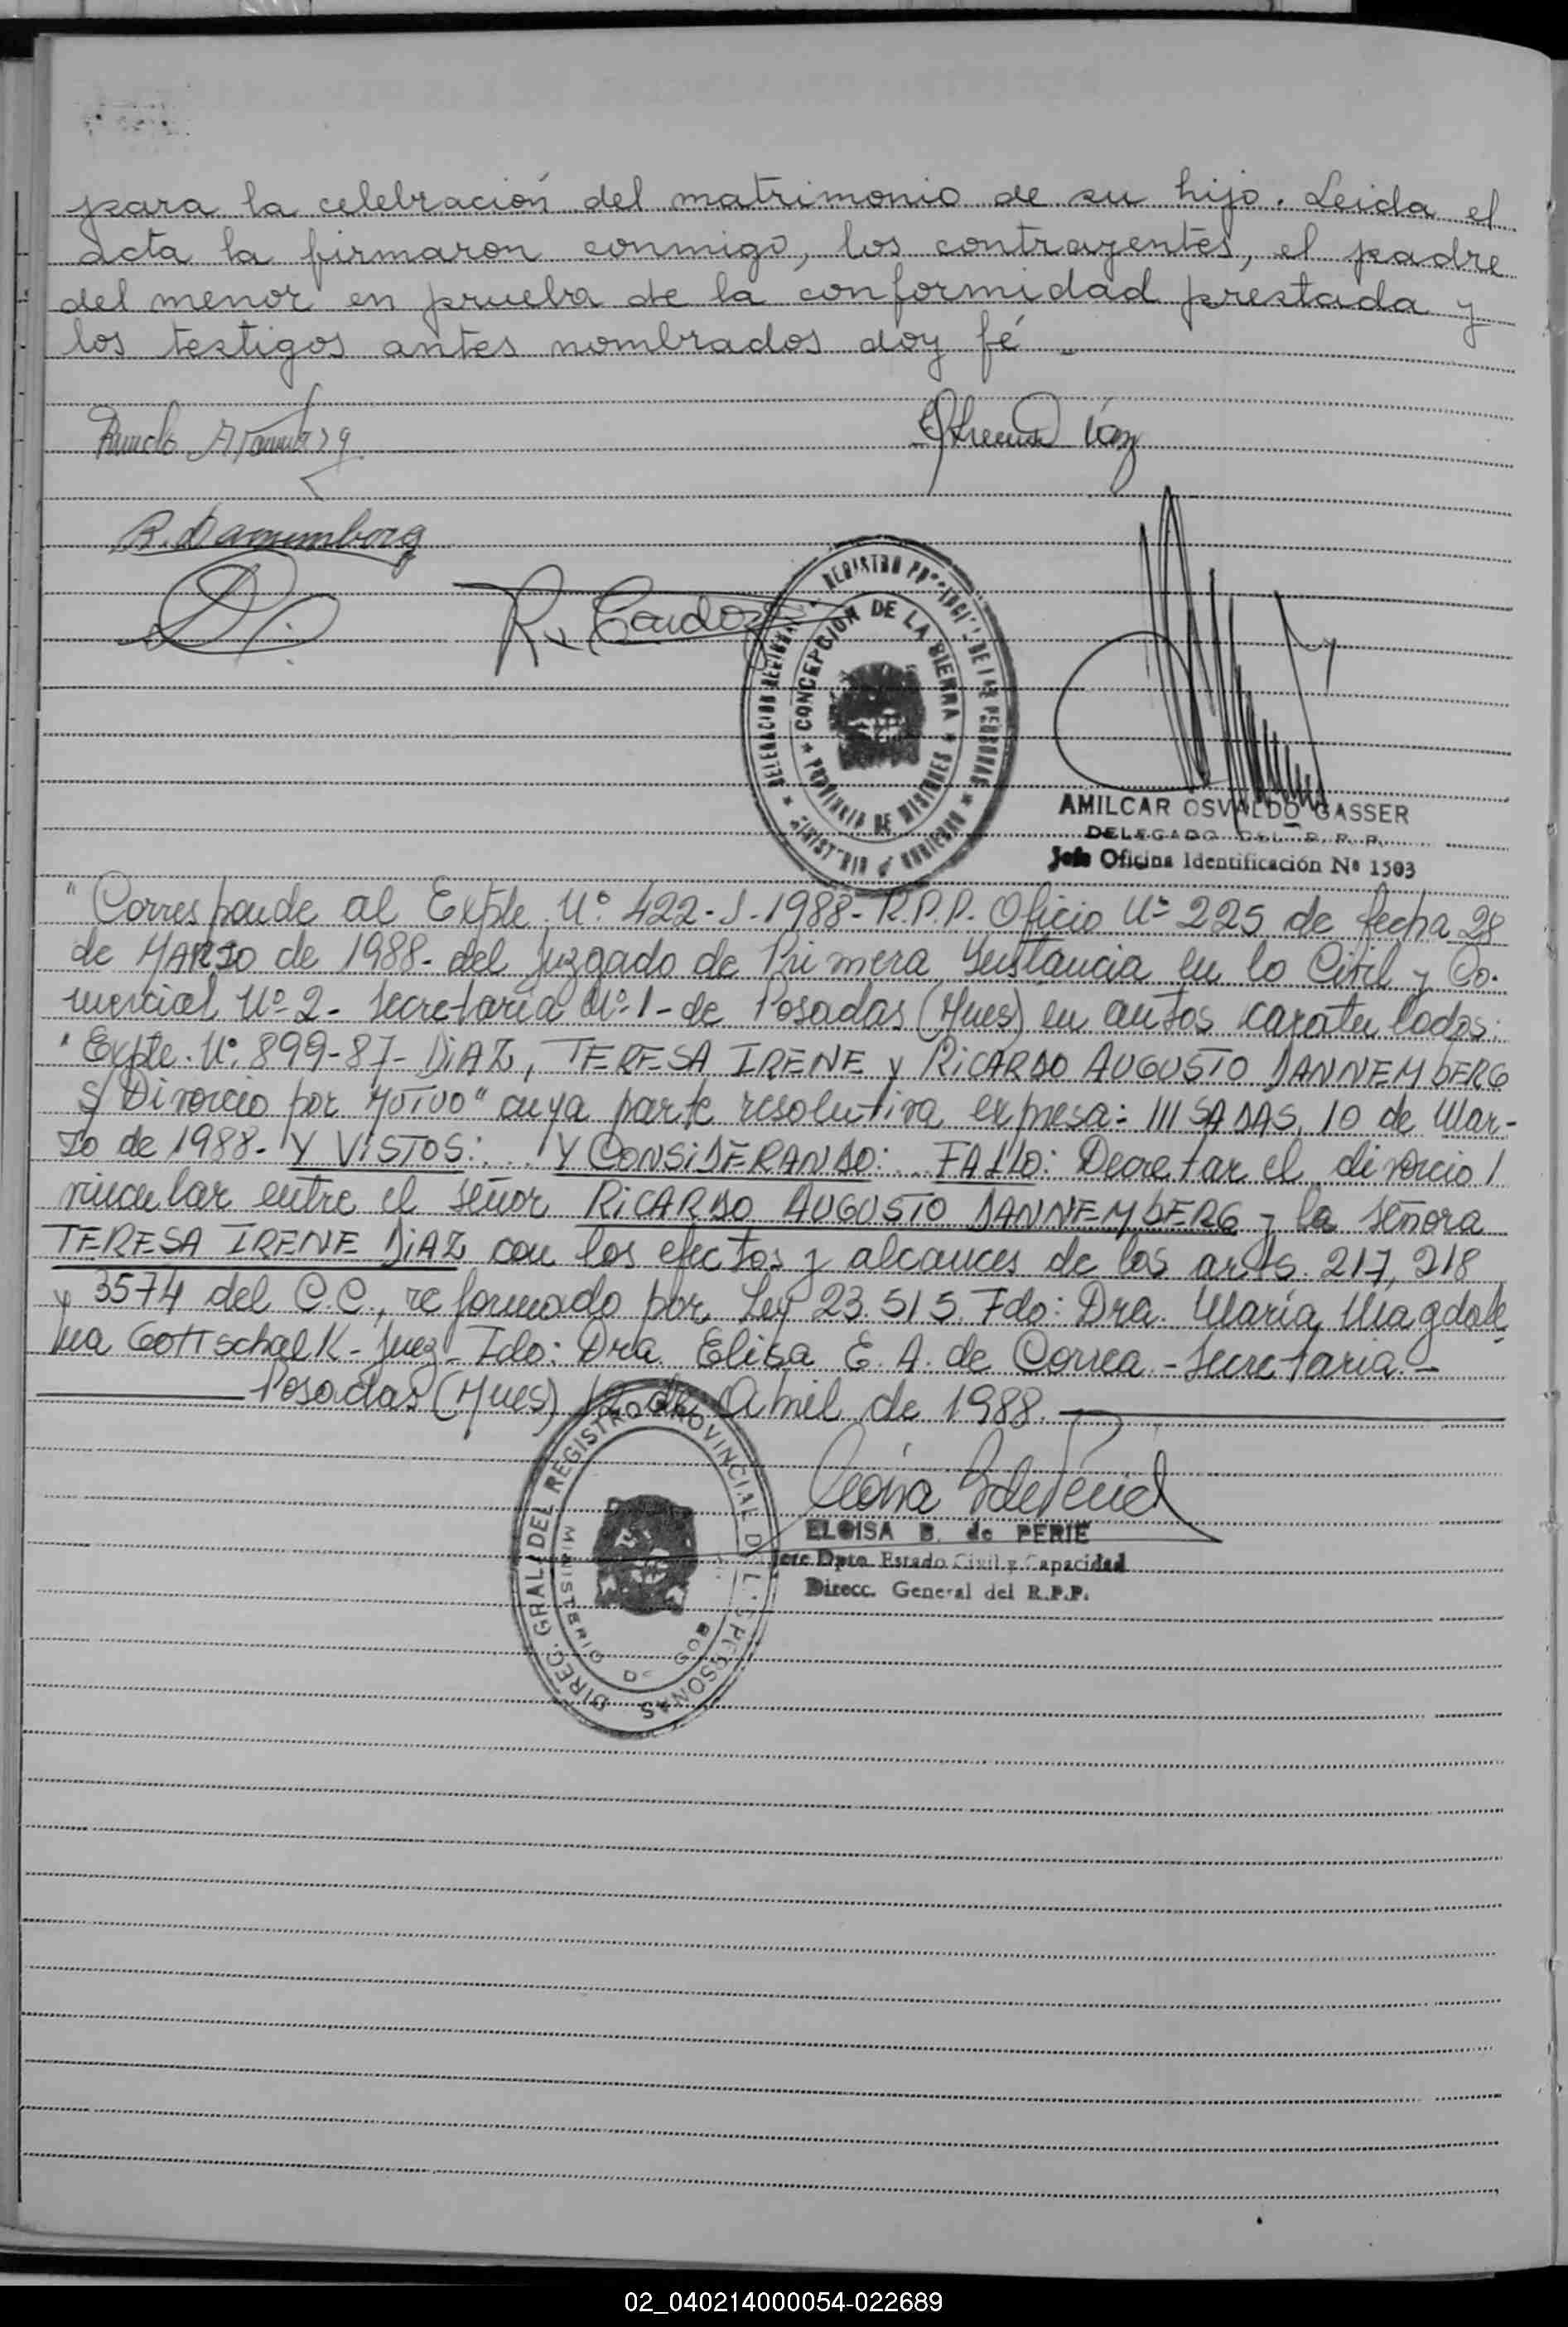 para la celebración del matrimonio de su hijo. Leida el
acta la firmaron conmigo, los contrayentes, el padre
del menor en prueba de la conformidad prestada y
los testigos antes nombrados doy fé -
Díaz
R. Dannemberg
R. Cardozo
DELEGACION REGISTRO PROVINCIAL DE LAS PERSONAS
CONCEPCION DE LA SIERRA
PROVINCIA DE MISIONES
AMILCAR OSVALDO GASSER
DELEGADO DEL R.P.P.
Jefe Oficina Identificación Nº 1503
"Corresponde al Expte. Nº 422-J-1988-R.P.P. Oficio Nº 225 de fecha 28
de MARZO de 1988- del Juzgado de Primera Instancia en lo Civil y Co-
mercial Nº 2- Secretaría Nº 1- de Posadas (Mnes) en autos caratulados:
"Expte. Nº 899-87- DIAZ, TERESA IRENE y RICARDO AUGUSTO DANNEMBERG
S/ Divorcio por MUTUO" cuya parte resolutiva expresa: /// SADAS, 10 de Mar-
zo de 1988- Y VISTOS: ... Y CONSIDERANDO: ... FALLO: Decretar el divorcio /
vincular entre el señor RICARDO AUGUSTO DANNEMBERG y la señora
TERESA IRENE DIAZ con los efectos y alcances de los arts. 217, 218
y 3574 del C.C., reformado por Ley 23.515. Fdo: Dra. María Magdale
na Gottschalk- Juez- Fdo: Dra Elisa E. A. de Correa - Secretaria. -
Posadas (Mnes) 12 de Abril de 1988.
DIREC. GRAL. DEL REGISTRO PROVINCIAL DE LAS PERSONAS
MINISTERIO DE GOB
ELOISA B. de PERIE
Jefe Dpto. Estado Civil y Capacidad
Direcc. General del R.P.P.
02_040214000054-022689